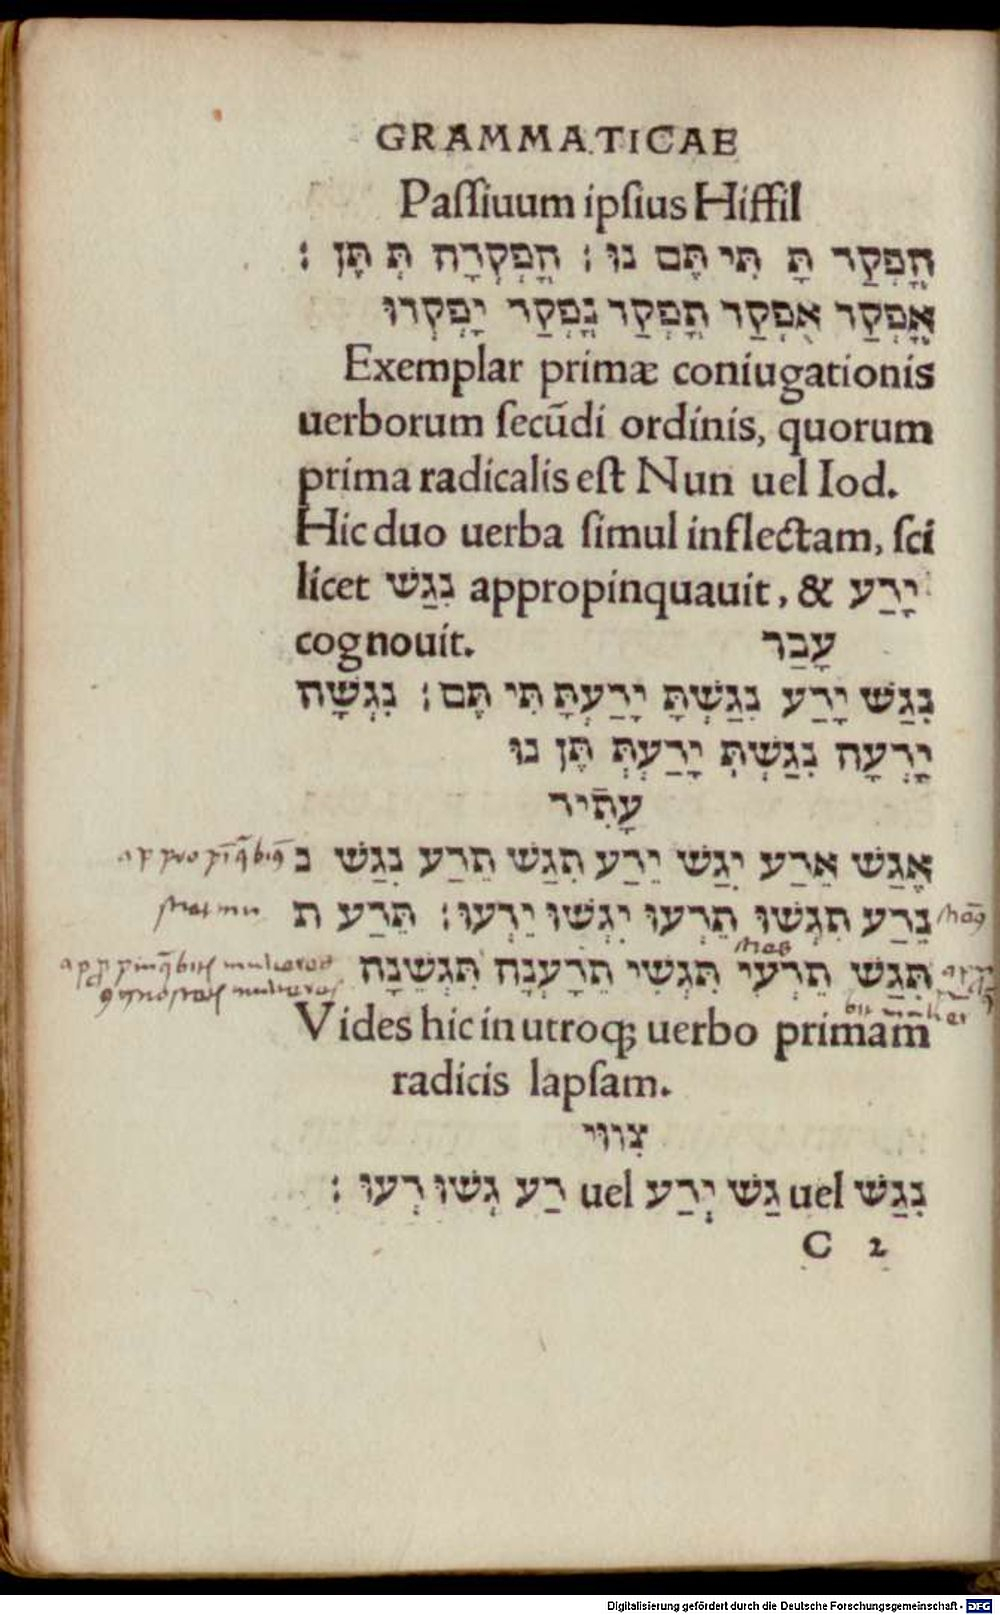 GRAMMATICAE
Paſſiuum ipſius Hiffil
הָפְקַד תָּ תִּי תֶּם נוּ ׃ הָפְקְדָה תְּ תֶּן ׃
אָפְקַד אֻפְקַד תָפְקַד נָפְקַד יָפְקְדוּ
Exemplar primæ coniugationis
uerborum ſecūdi ordinis, quorum
prima radicalis eſt Nun uel Iod.
Hic duo uerba ſimul inflectam, ſci
licet נִגַשׁ appropinquauit, & יָדַע
cognouit. עָבַר
נִגַשׁ יָדַע נִגַשְׁתָּ יָדַעְתָּ תִּי תֶּם ׃ נִגְשָׁה
יָדְעָה נִגַשְׁתְּ יָדַעְתְּ תֶּן נוּ
עָתִיד
אֶגַשׁ אֵדַע יִגַשׁ יֵדַע תִגַשׁ תֵדַע נִגַשׁ נ
נֵדַע תִגְשׁוּ תֵדְעוּ יִגְשׁוּ יֵדְעוּ ׃ תֵּדַע ת
תִּגַשׁ תֵדְעִי תִּגְשִׁי תֵדָעְנָה תִּגְשֵׁנָה
Vides hic in utroq; uerbo primam
radicis lapſam.
צִוּוּי
נִגַשׁ uel גַשׁ יְדַע uel דַע גְשׁוּ דְעוּ ׃
C 2
Digitalisierung gefördert durch die Deutsche Forschungsgemeinschaft - DFG